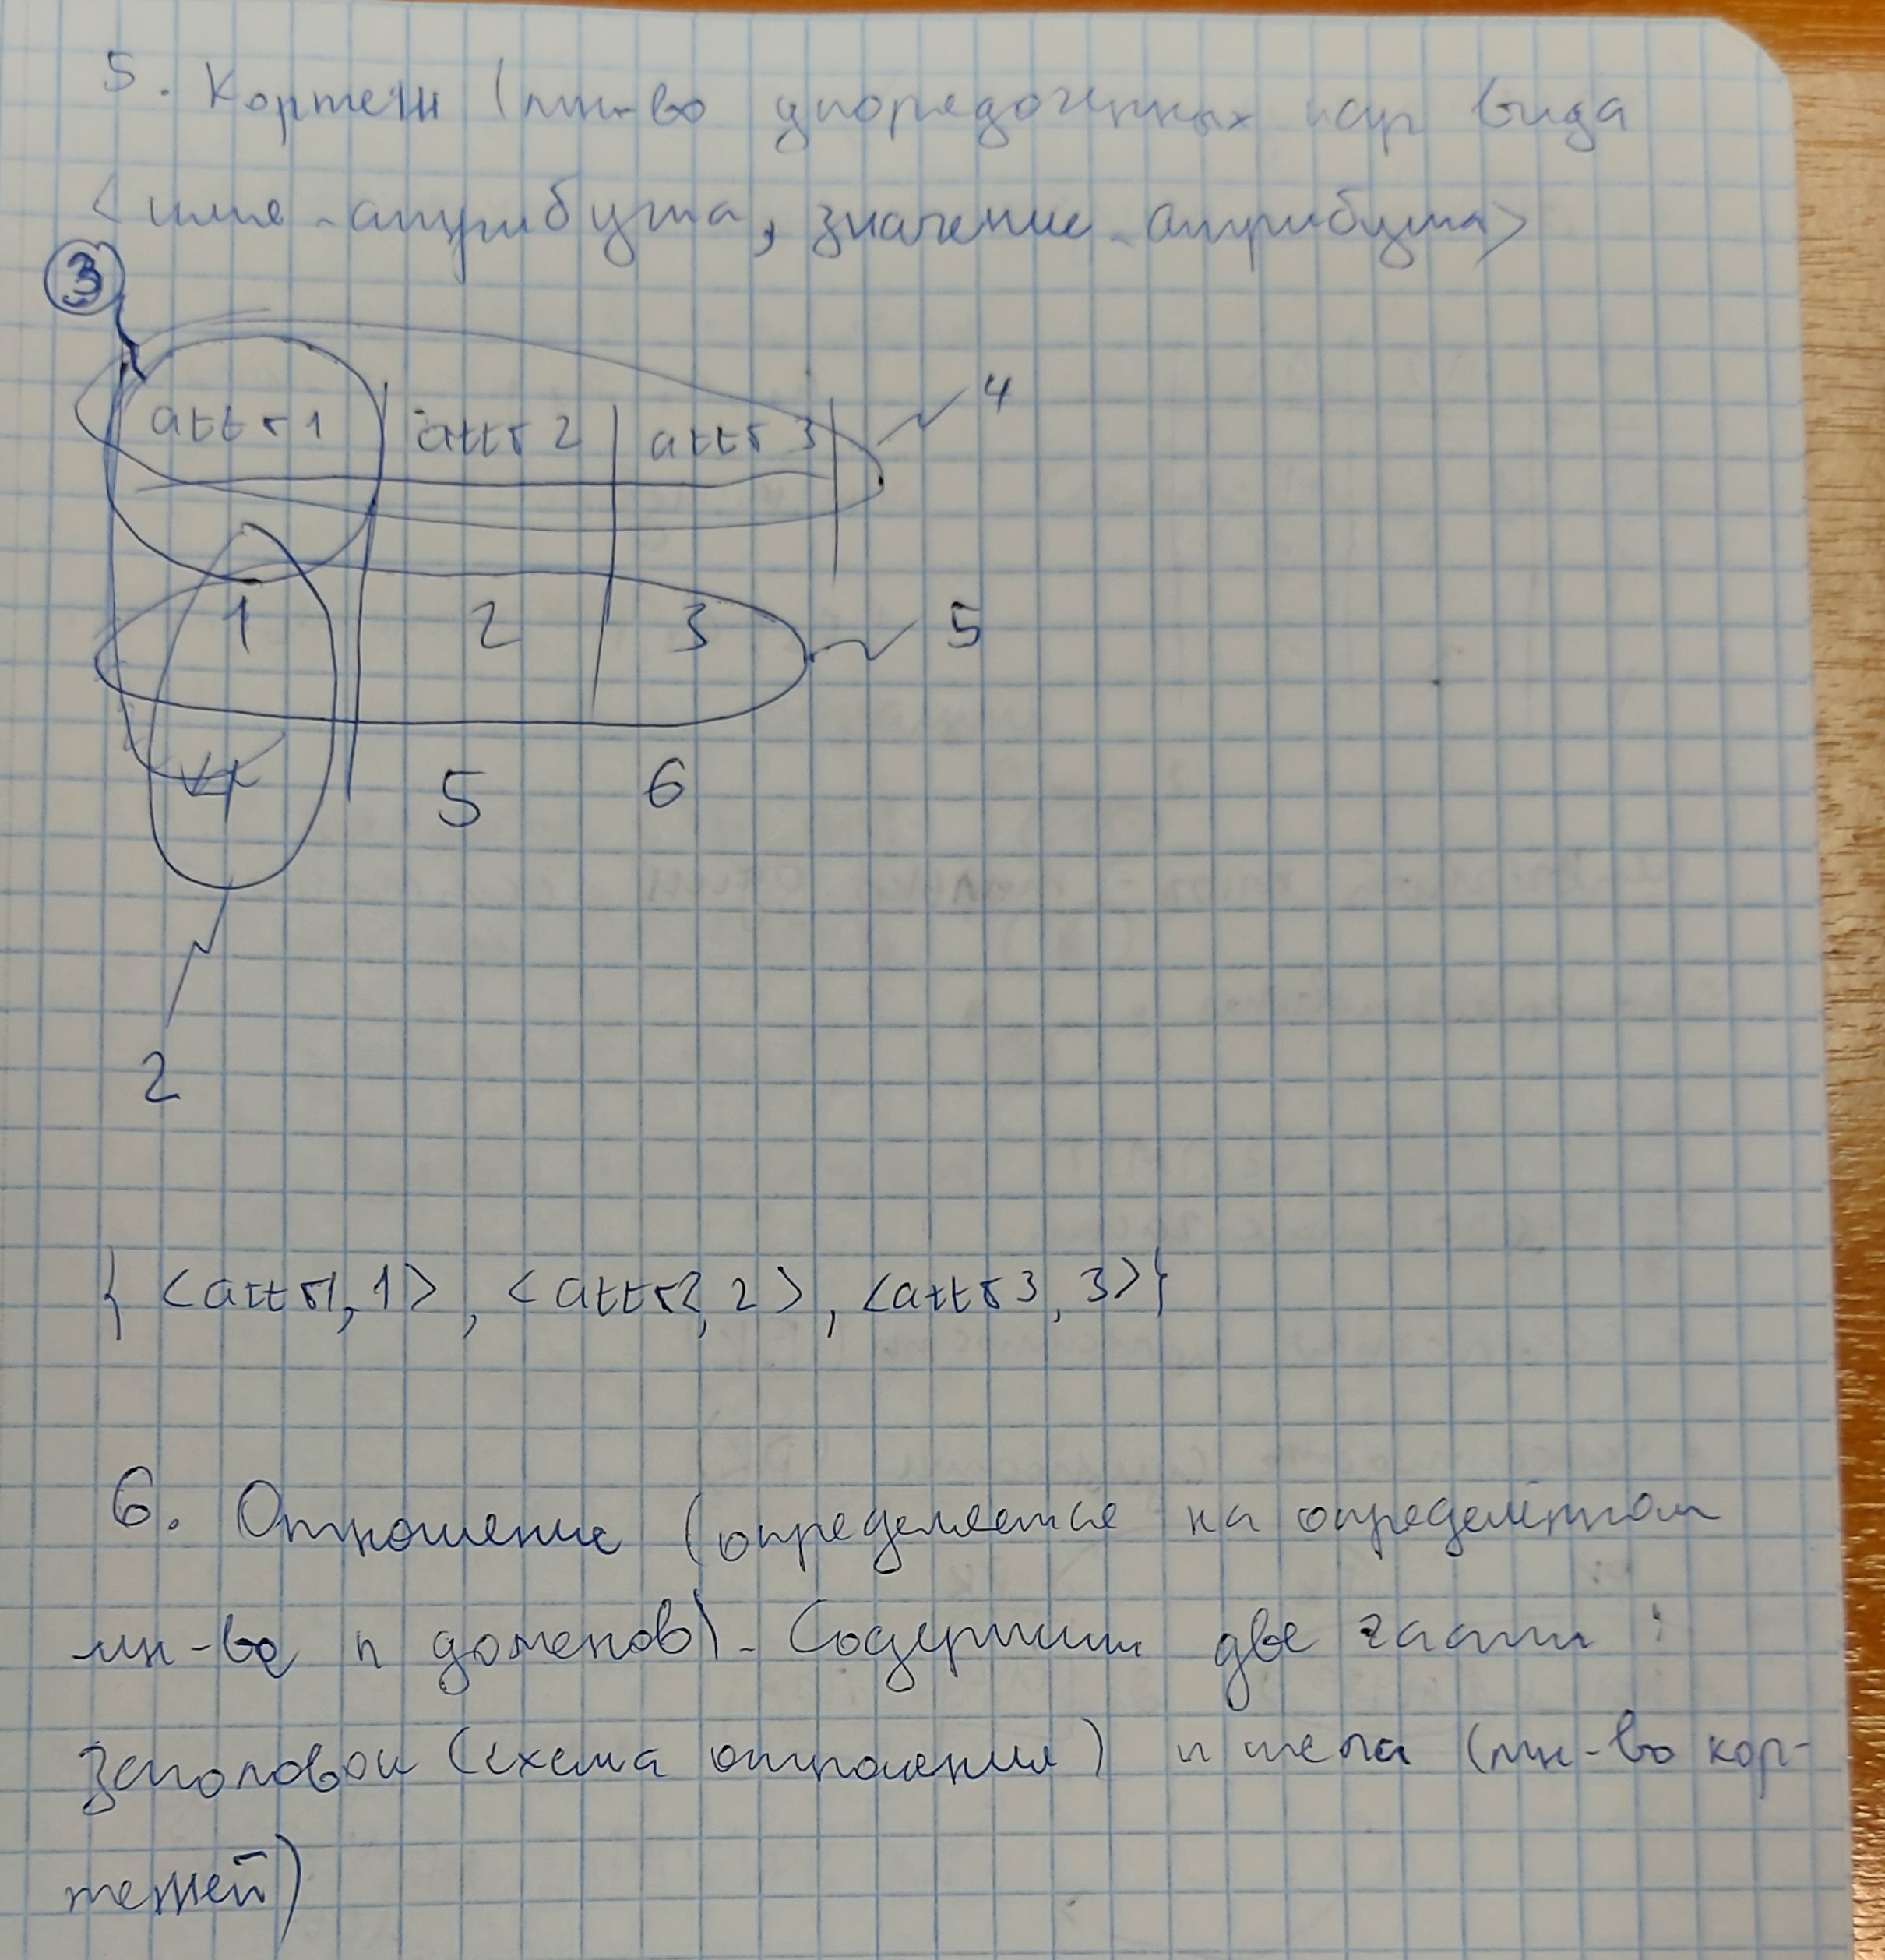 5. Кортеж (мн-во упорядоченных пар вида
<имя_атрибута, значение_атрибута>
3
attr1 attr2 attr3 4
1 2 3 5
4 5 6
2
{ <attr1, 1>, <attr2, 2>, <attr3, 3>}
6. Отношение (определяется на определённом
мн-ве n доменов). Содержит две части:
заголовок (схема отношения) и тела (мн-во кор-
тежей)